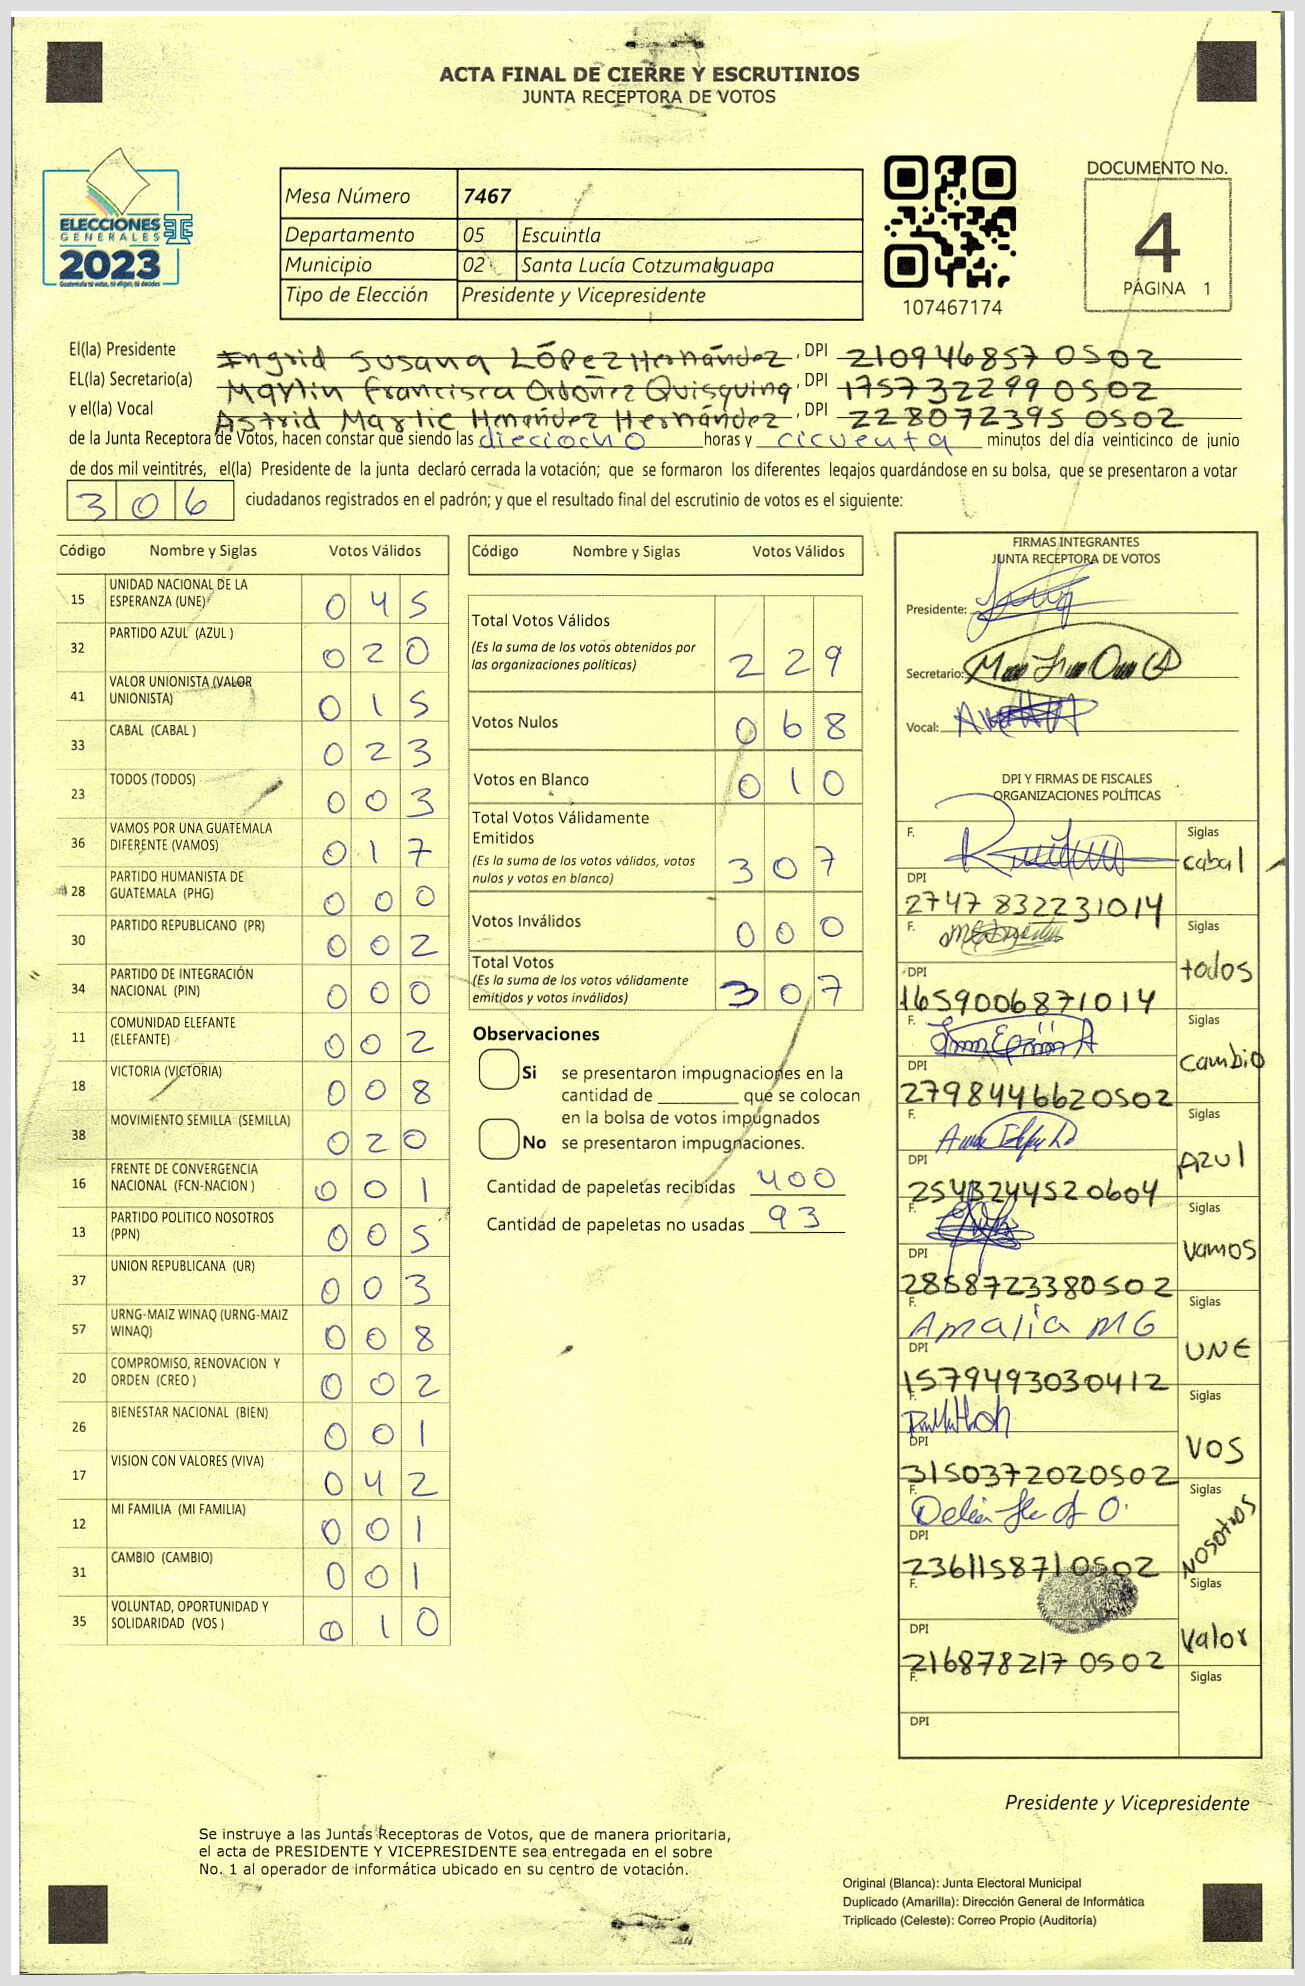 ACTA FINAL DE CIERRE Y ESCRUTINIOS
JUNTA RECEPTORA DE VOTOS
ELECCIONES
GENERALES
2023
Mesa Número 7467
Departamento 05 Escuintla
Municipio 02 Santa Lucía Cotzumalguapa
Tipo de Elección Presidente y Vicepresidente
107467174
DOCUMENTO No.
4
PÁGINA 1
El(la) Presidente Ingrid Susana LÓPEz Hernández, DPI 210946857 0502
EL(la) Secretario(a) Marlin Francisca Ordoñez Quisquina, DPI 175732299 0502
y el(la) Vocal Astrid Hernández, DPI 228072395 0502
de la Junta Receptora de Votos, hacen constar que siendo las dieciocho horas y cicuenta minutos del día veinticinco de junio
de dos mil veintitrés, el(la) Presidente de la junta declaró cerrada la votación; que se formaron los diferentes legajos guardándose en su bolsa, que se presentaron a votar
306 ciudadanos registrados en el padrón; y que el resultado final del escrutinio de votos es el siguiente:
Código Nombre y Siglas Votos Válidos
15 UNIDAD NACIONAL DE LA ESPERANZA (UNE) 045
32 PARTIDO AZUL (AZUL ) 020
41 VALOR UNIONISTA (VALOR UNIONISTA) 015
33 CABAL (CABAL ) 023
23 TODOS (TODOS) 003
36 VAMOS POR UNA GUATEMALA DIFERENTE (VAMOS) 017
28 PARTIDO HUMANISTA DE GUATEMALA (PHG) 000
30 PARTIDO REPUBLICANO (PR) 002
34 PARTIDO DE INTEGRACIÓN NACIONAL (PIN) 000
11 COMUNIDAD ELEFANTE (ELEFANTE) 002
18 VICTORIA (VICTORIA) 008
38 MOVIMIENTO SEMILLA (SEMILLA) 020
16 FRENTE DE CONVERGENCIA NACIONAL (FCN-NACION ) 001
13 PARTIDO POLITICO NOSOTROS (PPN) 005
37 UNION REPUBLICANA (UR) 003
57 URNG-MAIZ WINAQ (URNG-MAIZ WINAQ) 008
20 COMPROMISO, RENOVACION Y ORDEN (CREO ) 002
26 BIENESTAR NACIONAL (BIEN) 001
17 VISION CON VALORES (VIVA) 042
12 MI FAMILIA (MI FAMILIA) 001
31 CAMBIO (CAMBIO) 001
35 VOLUNTAD, OPORTUNIDAD Y SOLIDARIDAD (VOS ) 010
Código Nombre y Siglas Votos Válidos
Total Votos Válidos
(Es la suma de los votos obtenidos por
las organizaciones políticas) 229
Votos Nulos 068
Votos en Blanco 010
Total Votos Válidamente
Emitidos
(Es la suma de los votos válidos, votos
nulos y votos en blanco) 307
Votos Inválidos 000
Total Votos
(Es la suma de los votos válidamente
emitidos y votos inválidos) 307
Observaciones
Si se presentaron impugnaciones en la
cantidad de ________ que se colocan
en la bolsa de votos impugnados
No se presentaron impugnaciones.
Cantidad de papeletas recibidas 400
Cantidad de papeletas no usadas 93
FIRMAS INTEGRANTES
JUNTA RECEPTORA DE VOTOS
Presidente:
Secretario:
Vocal:
DPI Y FIRMAS DE FISCALES
ORGANIZACIONES POLÍTICAS
F. Siglas cabal
DPI 2747 832231014
F. Siglas todos
DPI 1659006871014
F. Siglas cambio
DPI 2798446620502
F. Siglas AZUl
DPI 2543244520604
F. Siglas vamos
DPI 2858723380502
F. Amalia MG Siglas UNE
DPI 1579493030412
F. Siglas VOS
DPI 3150372020502
F. Siglas NOSOTROS
DPI 2361158710502
F. Siglas Valor
DPI 216878217 0502
F. Siglas
DPI
Presidente y Vicepresidente
Se instruye a las Juntas Receptoras de Votos, que de manera prioritaria,
el acta de PRESIDENTE Y VICEPRESIDENTE sea entregada en el sobre
No. 1 al operador de informática ubicado en su centro de votación.
Original (Blanca): Junta Electoral Municipal
Duplicado (Amarilla): Dirección General de Informática
Triplicado (Celeste): Correo Propio (Auditoría)